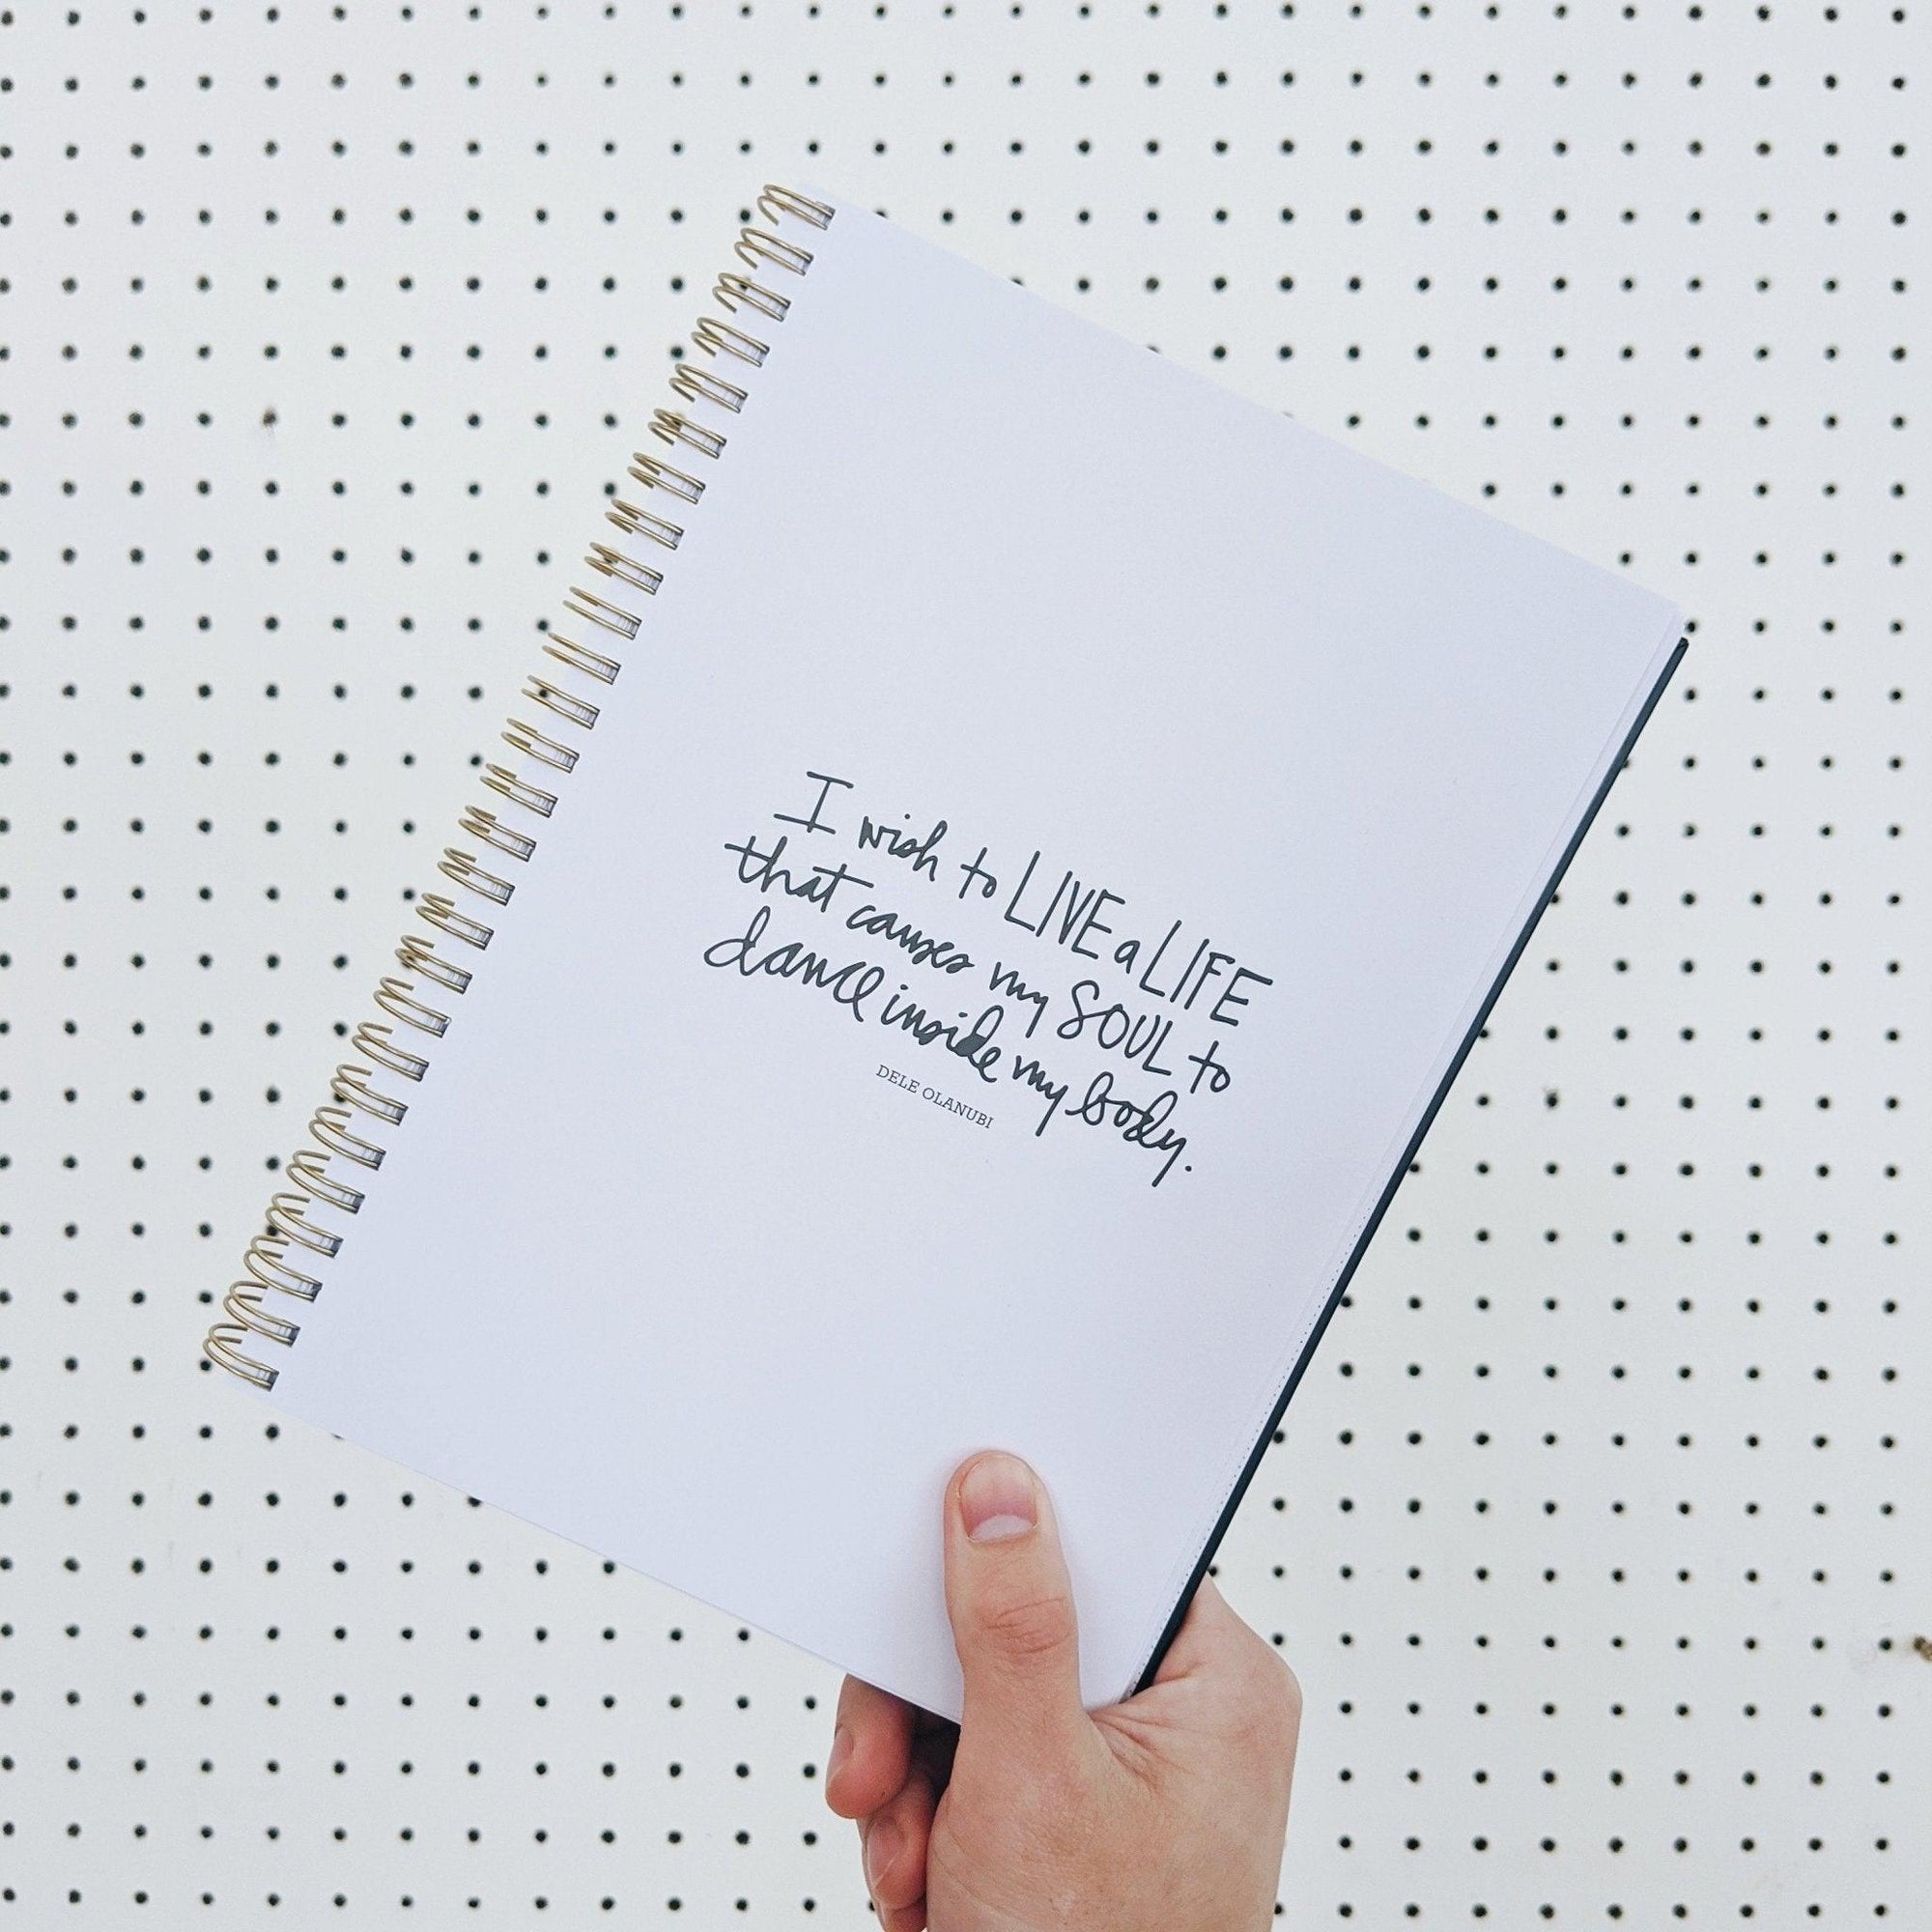 I wish to LIVE a LIFE
that causes my SOUL to
dance inside my body.
DELE OLANUBI